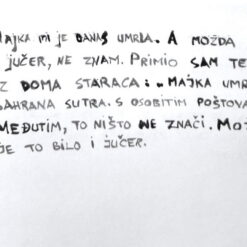 MAJKA MI JE DANAS UMRLA. A MOŽDA
JUČER, NE ZNAM. PRIMIO SAM TE
Z DOMA STARACA: „MAJKA UMR
SAHRANA SUTRA. S OSOBITIM POŠTOVA
MEĐUTIM, TO NIŠTO NE ZNAČI. MO
JE TO BILO I JUČER.